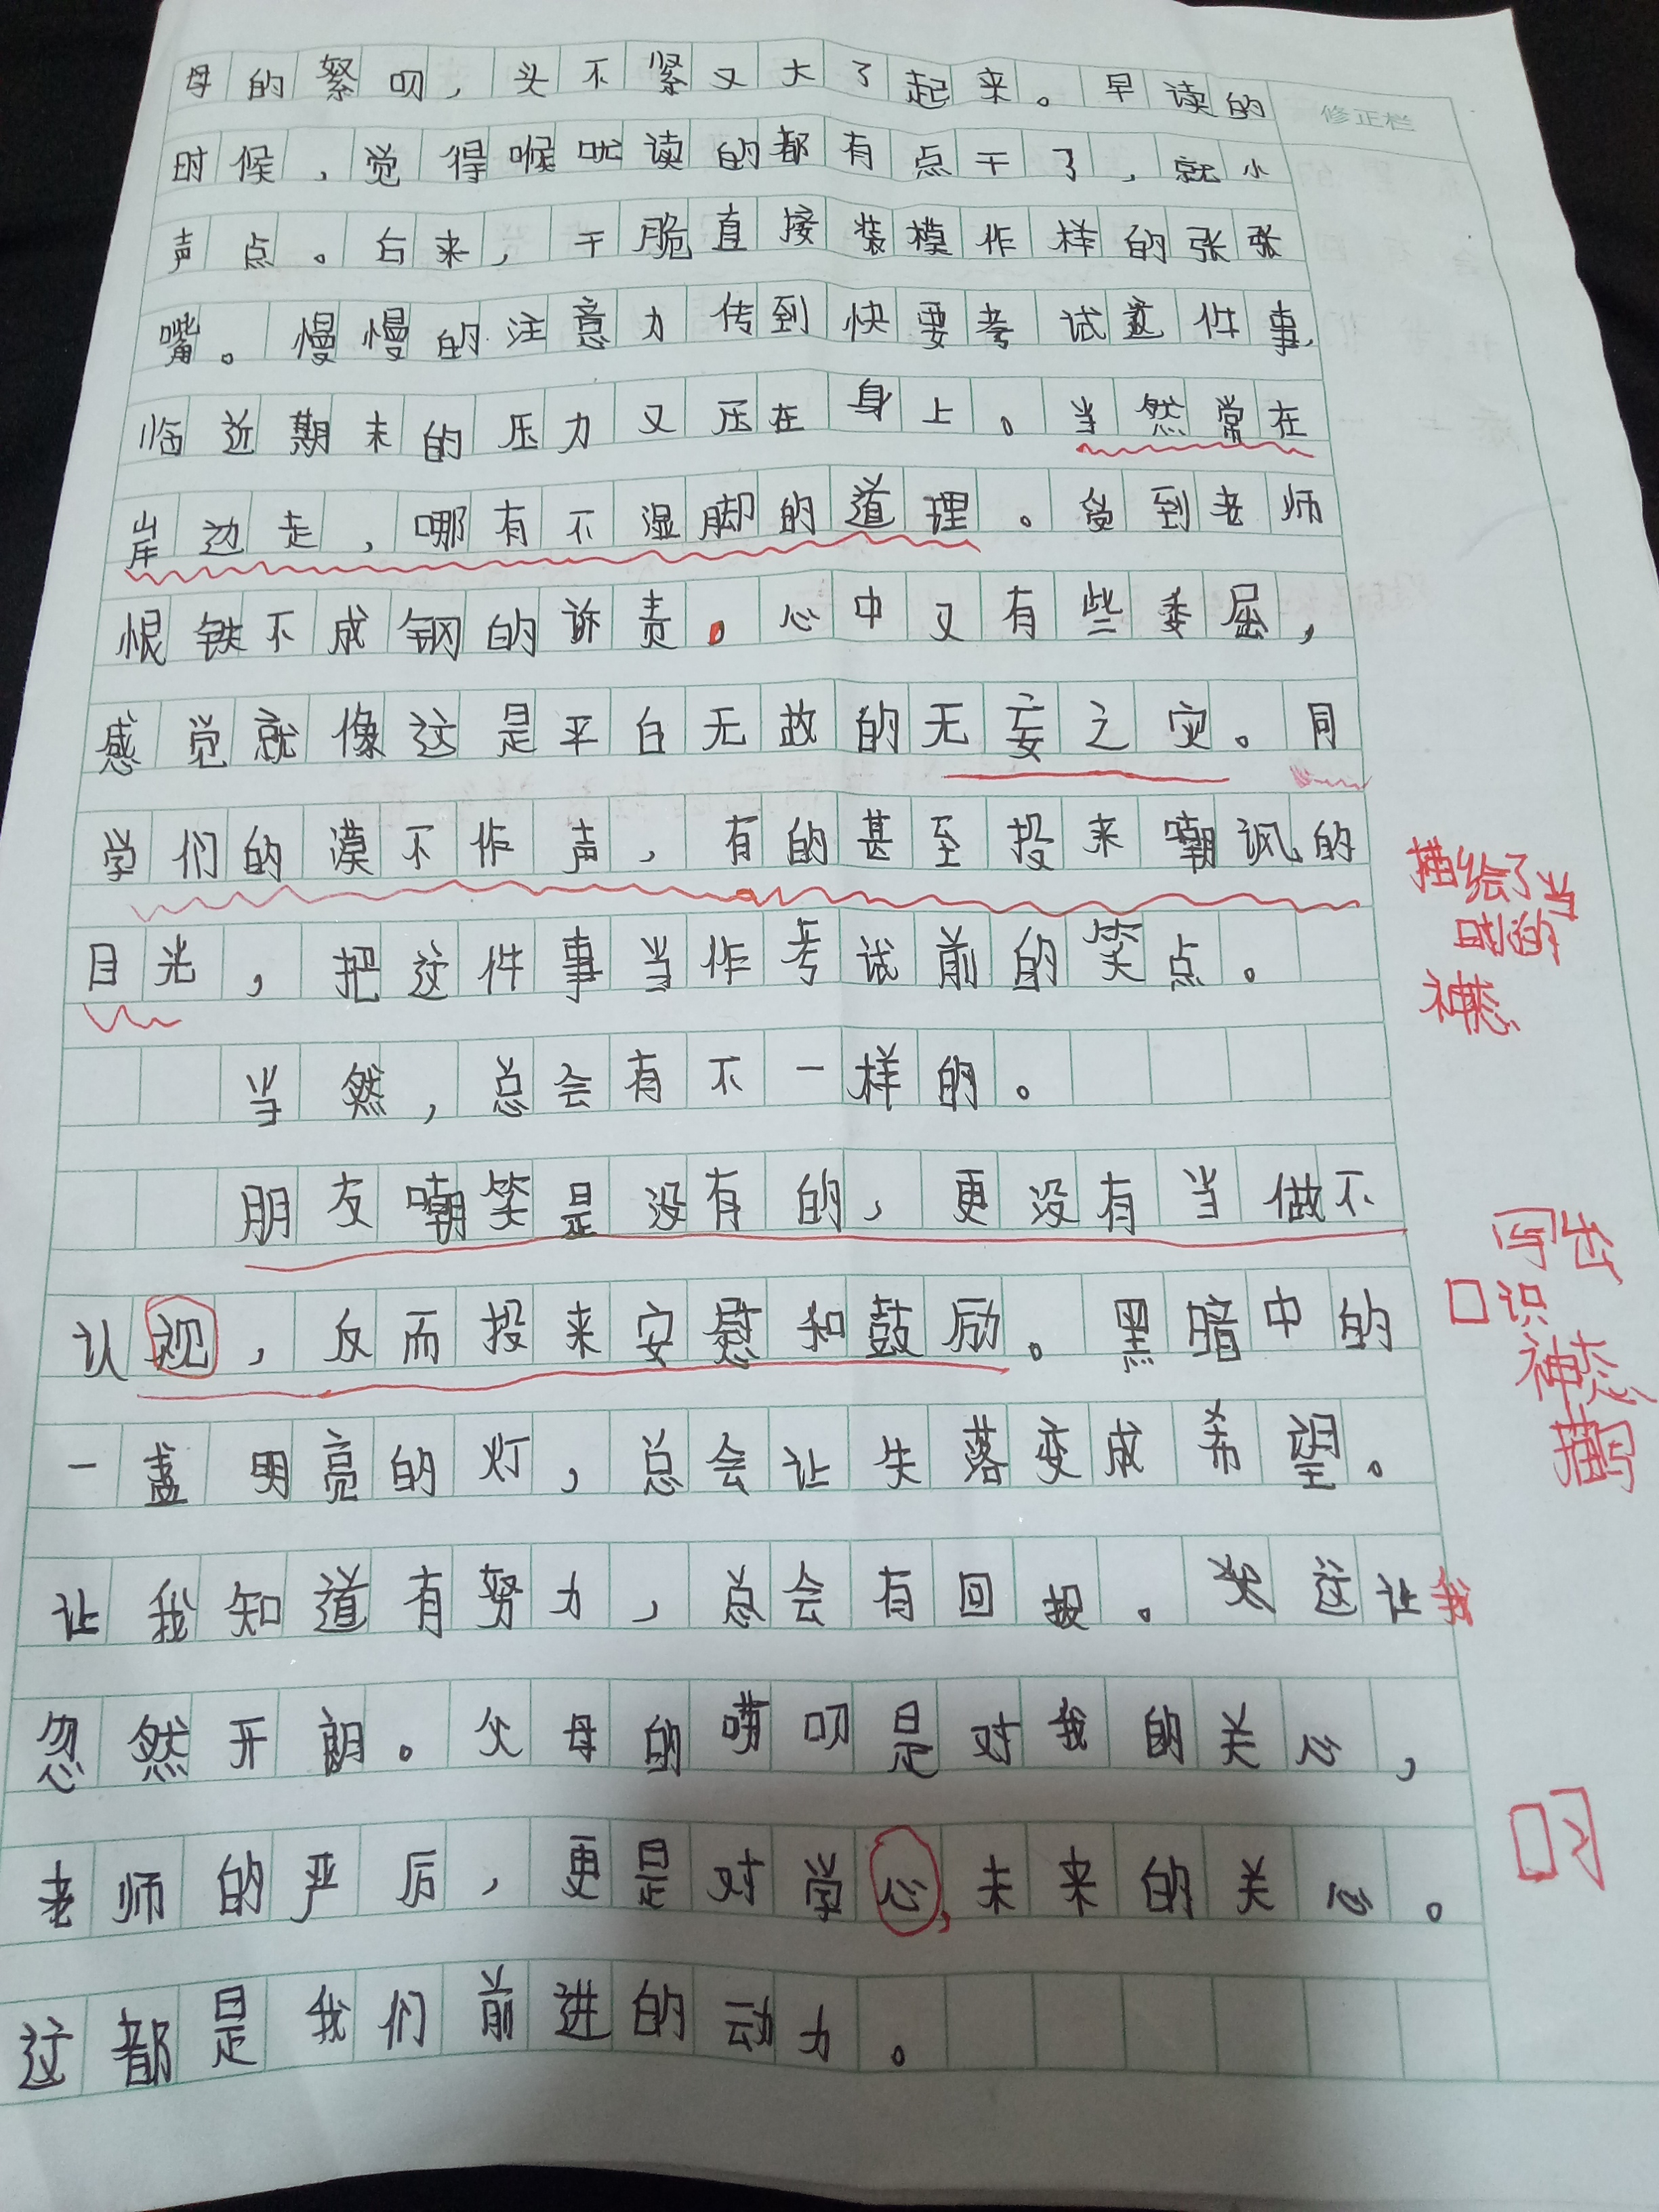 母的絮叨，头不紧又大了起来。早读的
修正栏
时候，觉得喉咙读的都有点干了，就小
声点。后来，干脆直接装模作样的张张
嘴。慢慢的注意力传到快要考试这件事，
临近期末的压力又压在身上。当然常在
岸边走，哪有不湿脚的道理。受到老师
恨铁不成钢的诉责。心中又有些委屈，
感觉就像这是平白无故的无妄之灾。同
学们的漠不作声，有的甚至投来嘲讽的
目光，把这件事当作考试前的笑点。
描绘了当
时的
神态
当然，总会有不一样的。
朋友嘲笑是没有的，更没有当做不
认视，反而投来安慰和鼓励。黑暗中的
写出
识
神态
描写
一盏明亮的灯，总会让失落变成希望。
让我知道有努力，总会有回报。类这让我
忽然开朗。父母的唠叨是对我的关心，
老师的严厉，更是对学心，未来的关心。
这都是我们前进的动力。